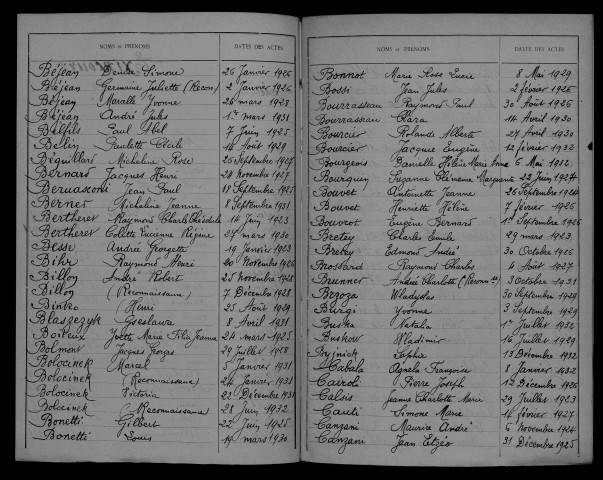 NOMS et PRÉNOMS DATES DES ACTES
Béjean Denise Simone 26 Janvier 1926
Béjean Germaine Juliette (Recon) 2 Janvier 1926
Béjean Marcelle Yvonne 26 mars 1928
Béjean André Jules 1er mars 1931
Belfils Paul Abel 7 Juin 1925
Belin Paulette Cécile 14 Août 1929
Béquillard Micheline Rose 26 Septembre 1927
Bernard Jacques Henri 24 Novembre 1927
Beruasconi Jean Paul 18 Septembre 1925
Berner Micheline Jeanne 8 Septembre 1931
Bertheret Raymond Charles 14 Juin 1923
Bertheret Colette Lucienne Régine 27 mars 1930
Besse André Georges 19 Janvier 1923
Bihr Raymond Henri 20 Novembre 1926
Billon André Robert 25 Novembre 1928
Billon (Reconnaissance) 7 Décembre 1928
Henri 25 Août 1929
Blaszezyk Czeslawa 8 Avril 1931
Boiteux Yvette Marie Jeanne 24 mars 1925
Bolmont Jacques Georges 29 Juillet 1928
Bolocinek Marcel 5 Janvier 1931
Bolocinek (Reconnaissance) 24 Janvier 1931
Bolocinek Victoria 22 Décembre 1931
Bolocinek (Reconnaissance) 28 Juin 1932
Bonetti Gilbert 22 Juin 1925
Bonetti Louis 19 mars 1930
NOMS et PRÉNOMS DATES DES ACTES
Bonnot Marie Rose Lucie 8 Mai 1929
Bossi Jean Jules 2 Février 1926
Bourrasseau Raymond Paul 30 Août 1926
Bourrasseau Clara 14 Avril 1930
Bourcier Rolande Alberte 24 Avril 1930
Bourcier Jacques Eugène 12 Février 1932
Bourgeois Camille Hélène Marie Anne 6 Mai 1932
Bourquy Suzanne Clémence Marguerite 22 Juin 1927
Bouvet Antoinette Jeanne 26 Septembre 1924
Bouvet Henriette Hélène 7 Février 1926
Bouvrot Eugène Bernard 1er Septembre 1926
Bretey Charles Emile 29 mars 1923
Bretey Edmond André 30 Octobre 1926
Brossard Raymond Charles 4 Août 1927
Brunner Andrée Charlotte (Reconn ce) 3 Octobre 1931
Brzoza Wladyslas 30 Septembre 1929
Burgi Yvonne 3 Septembre 1929
Buska Natalia 1er Juillet 1932
Buskow Wladimir 16 Juillet 1929
Bysnick Sophie 13 Décembre 1932
Cabala Françoise 8 Janvier 1932
Cairoli Pierre Joseph 1er Décembre 1926
Calois Jeanne Charlotte Marie 29 Juillet 1923
Cauti Simone Marie 14 Février 1927
Canzani Maurice André 6 Novembre 1924
Canzani Jean 31 Décembre 1925